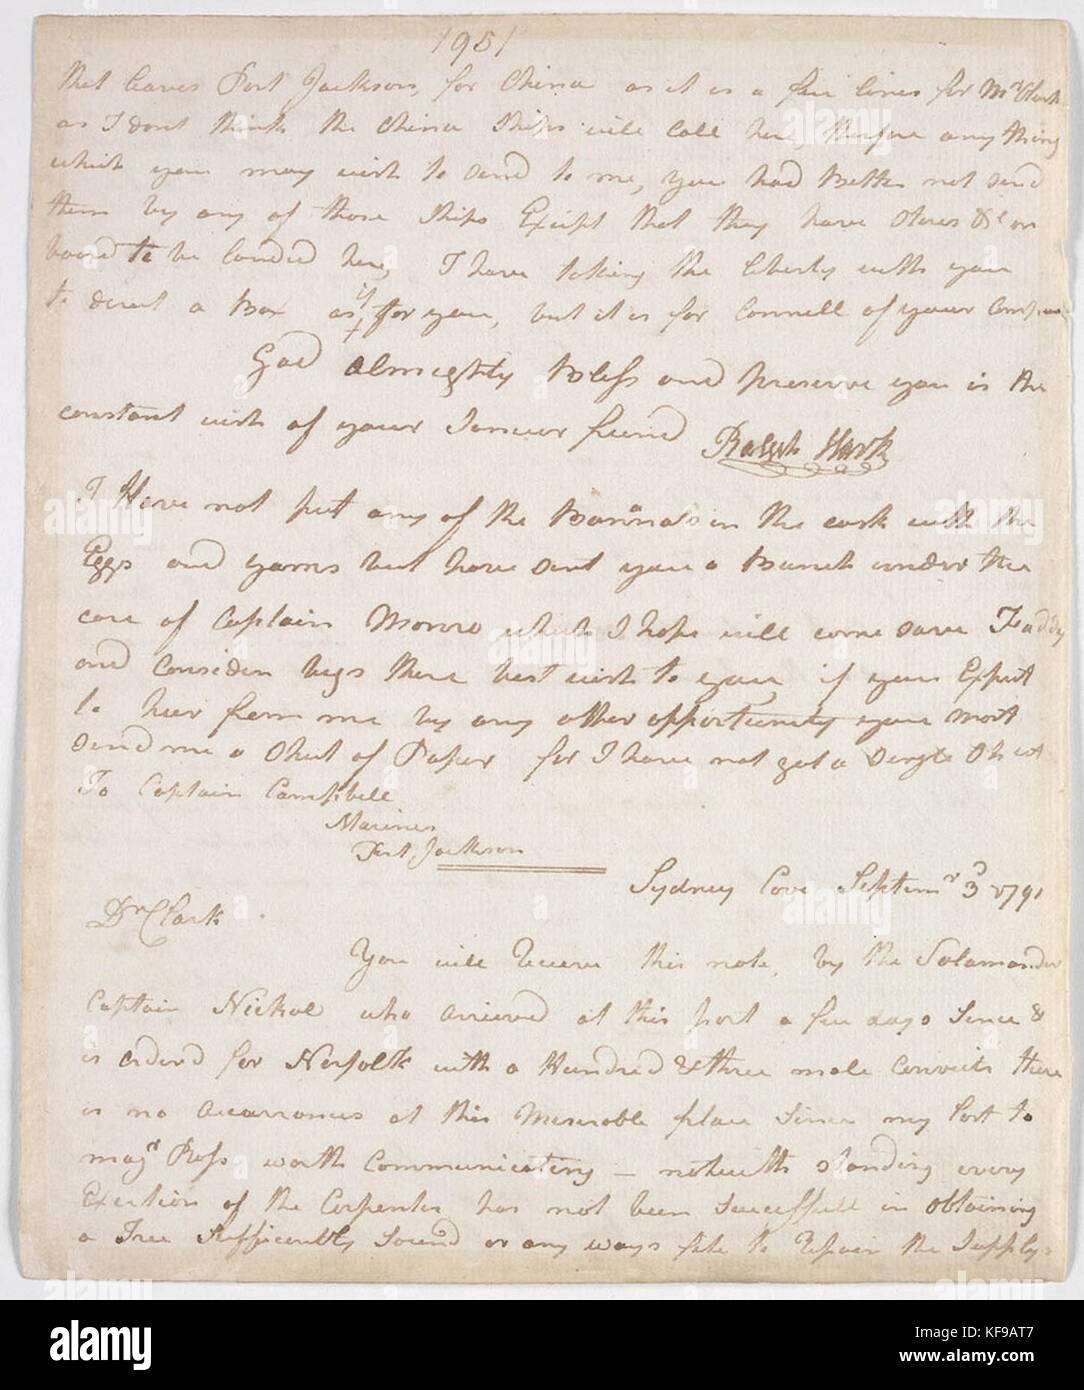 1951
that leaves Port Jackson, for China as it is a few lines for Mrs Clark
as I dont think the China Ships will Call here therfore any thing
which you may wish to Send to me, you had better not Send
them by any of those Ships Except that they have Stores &c on
board to be landed here, I have taking the liberty with you
to direct a Box as if for you, but it is for Connell of your Company
God Almighty Bless and preserve you is the
constant wish of your Sincer friend Ralph Clark
I Have not put any of the Banana's in the cask with the
Eggs and yams but have Sent you a Bunch under the
care of Captain Monroe which I hope will come Save Faddy
and Considen begs there best wish to you, if you Expect
to hear from me by any other opportunity you most
Send me a Sheet of Paper for I have not got a Single Sheet
To Captain Campbell
Marines
Port Jackson
Sydney Cove Septemr 3d 1791
Dr Clark
You will Receve this note, by the Salamander
Captain Nichol who arrived at this port a few days Since &
is orderd for Norfolk with a Hundred & three male Convicts there
is no Accurrances at this Meserable place Since my last to
majr Ross worth Communicating — notwith standing every
Exertion of the Carpenter has not been Successfull in obtaining
a Tree Sufficently Sound or any ways fitt to Repair the Supply
alamy
Image ID: KF9AT7
www.alamy.com